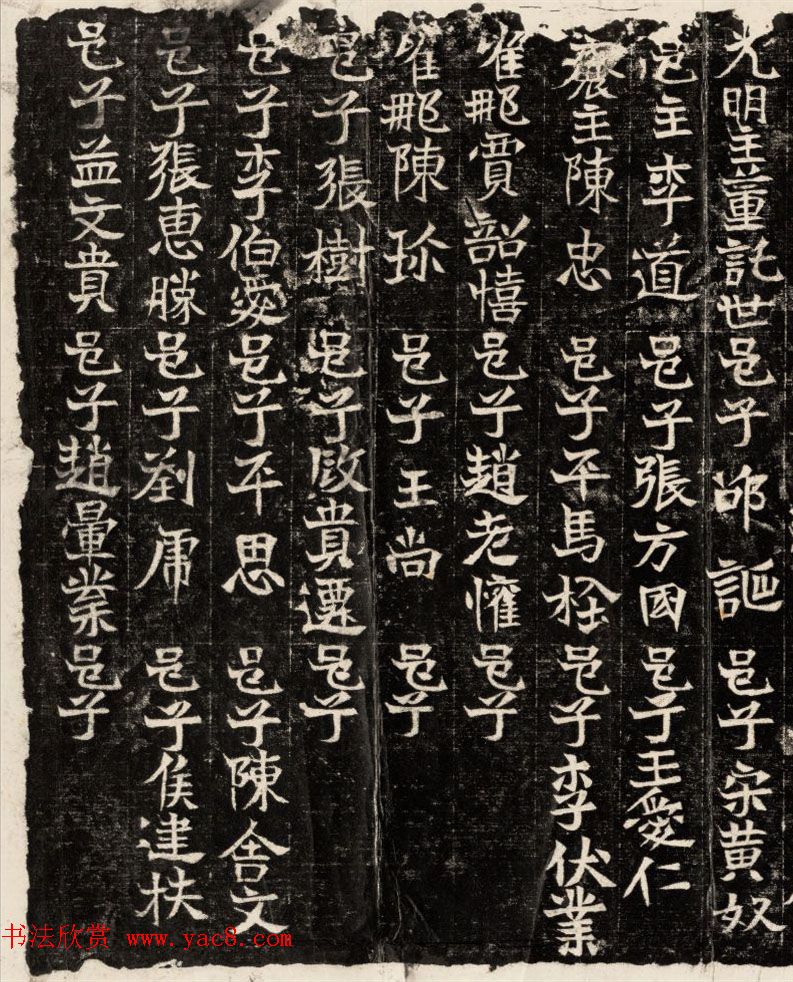 光明主董託世邑子邵謳邑子宋黄奴
邑主李道邑子張方國邑子王愛仁
襄主陳忠邑子平馬拴邑子李伏業
唯那賈韶憘邑子趙老懽邑子
唯那陳珎邑子王尚邑子
邑子張樹邑子殷貴遷邑子
邑子李伯愛邑子平思邑子陳舍文
邑子張惠勝邑子劉席邑子侯建扶
邑子益文貴邑子趙暈業邑子
书法欣赏 www.yac8.com